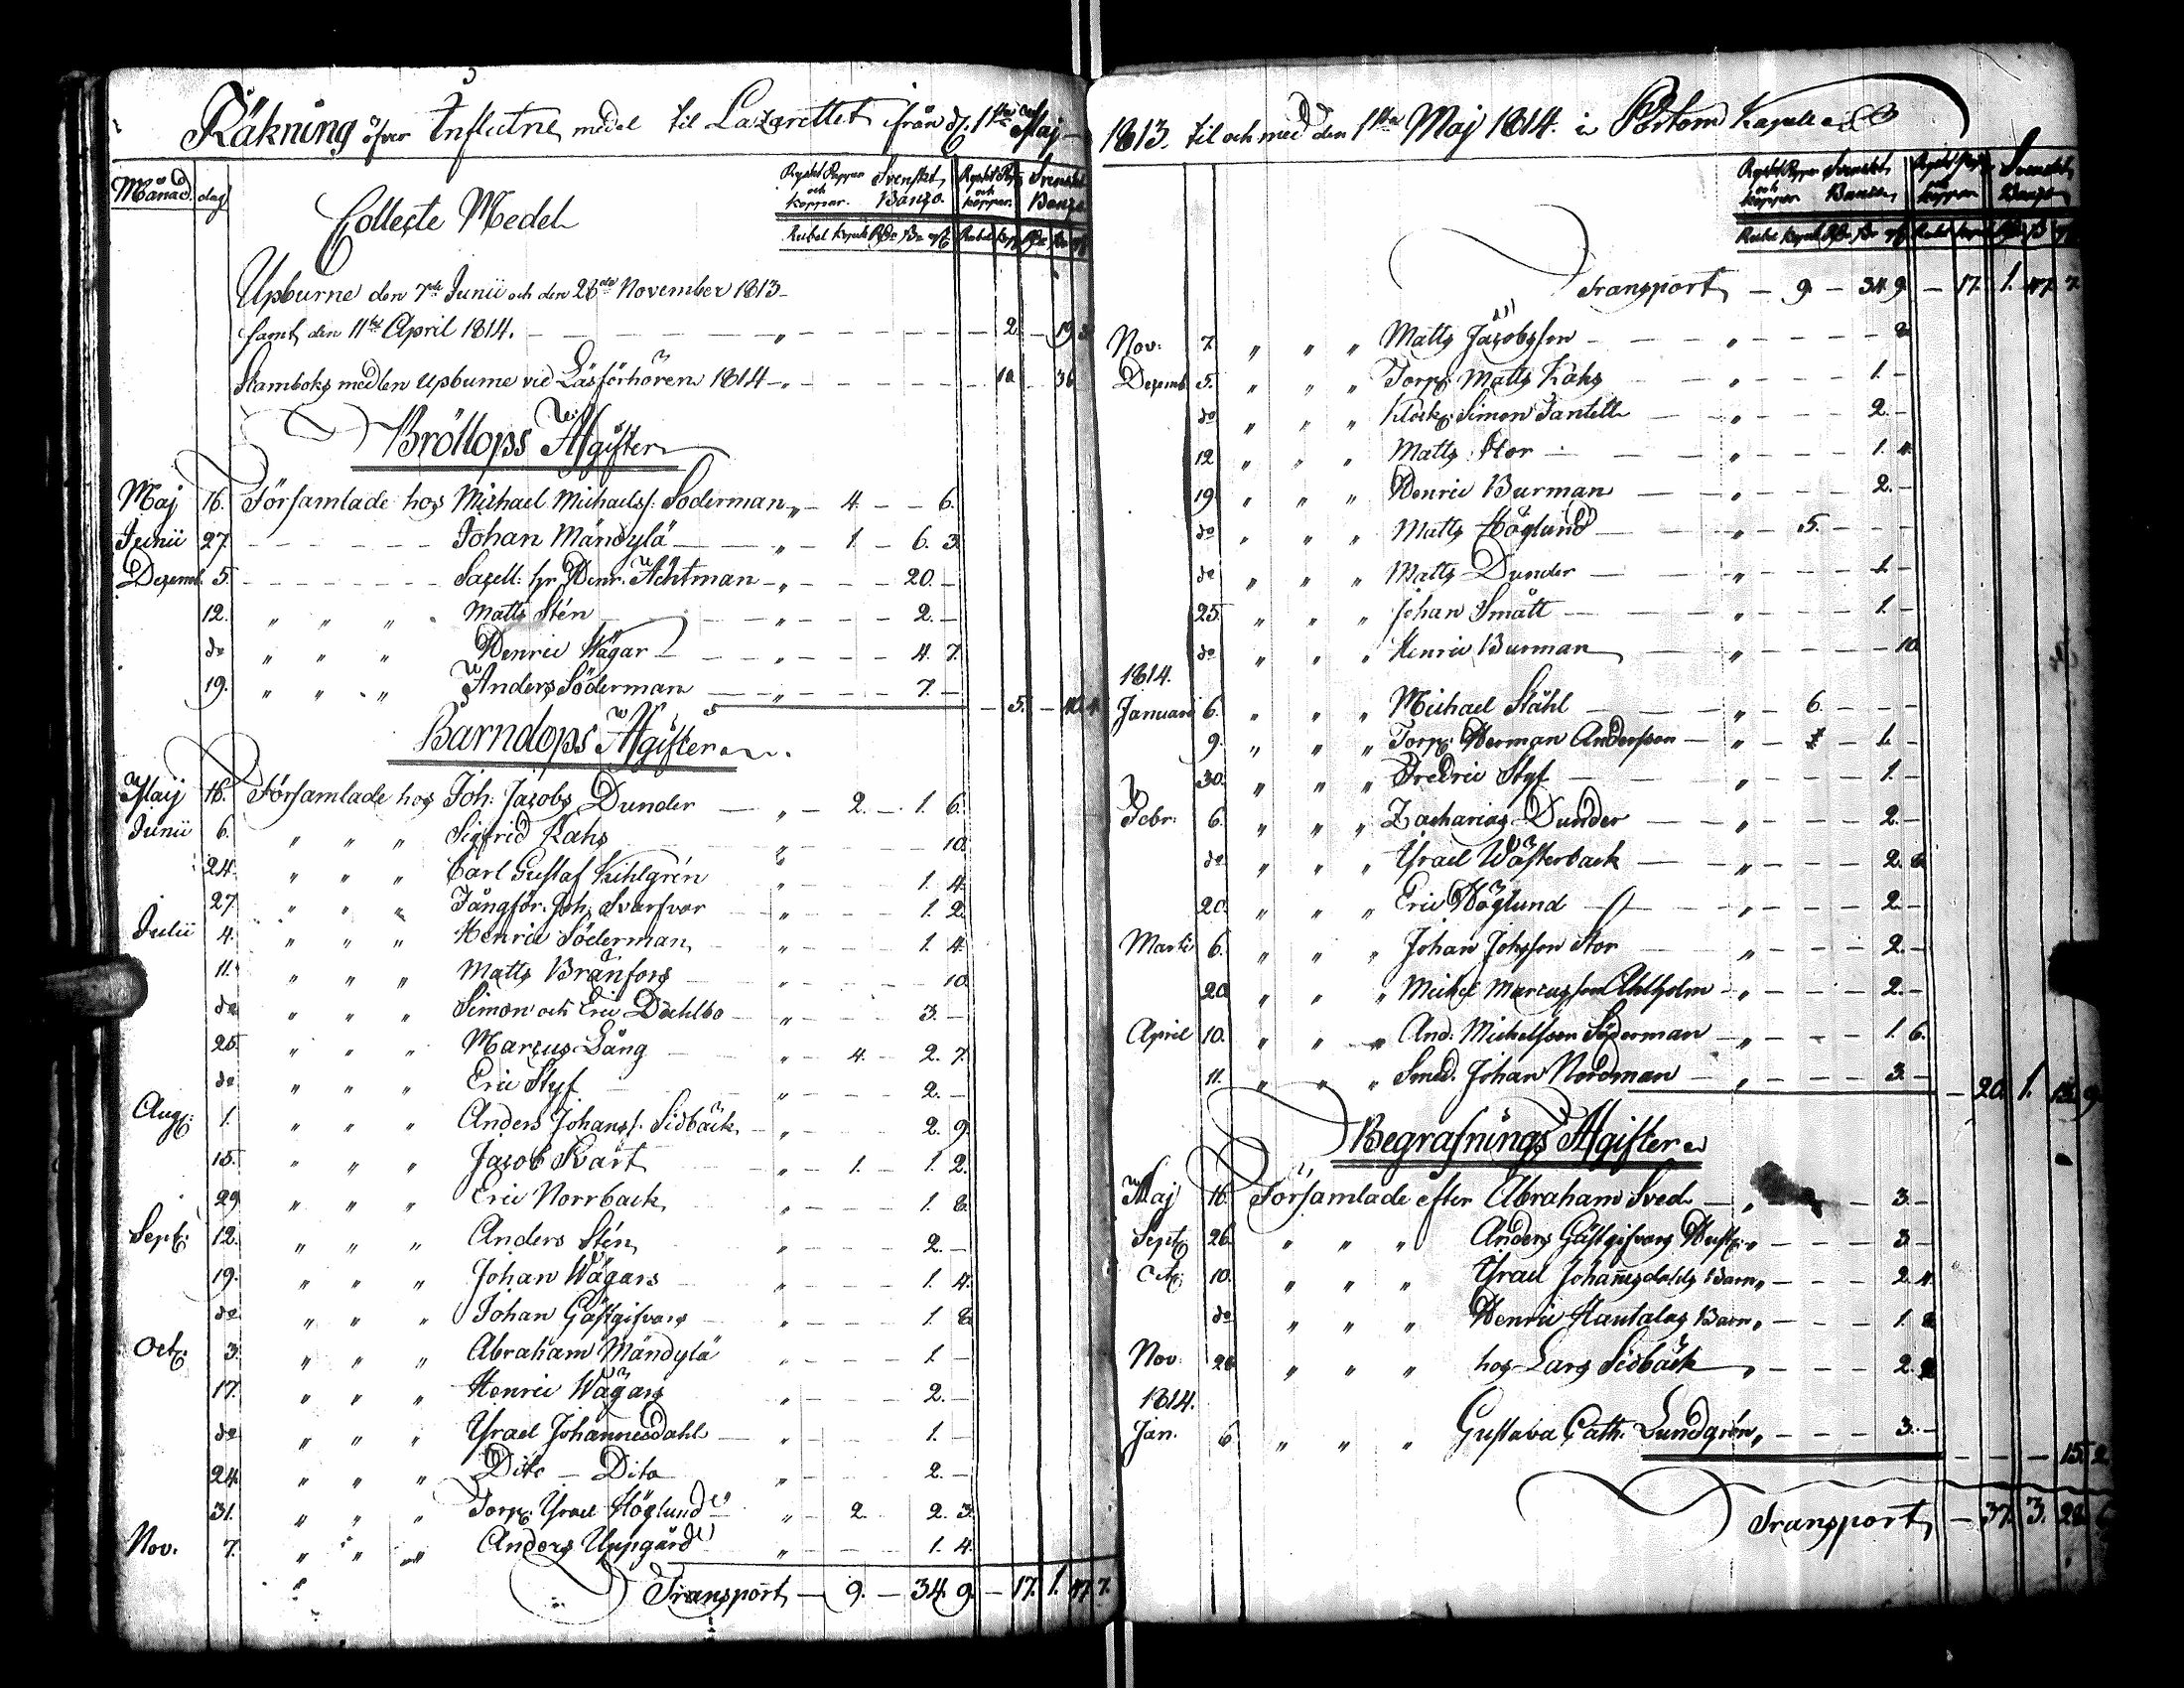 Räkning öfver Influtne medel til Lazarettet ifrån d. 1sta Maj
Månad. dag
Collecte Medel
Ryskt Papper och koppar. Svenskt Banco. Ryskt Pap och koppar. Svenskt Banco
Rubel Kopek Rdr sk rst Rubel Kop Rdr sk rst
Upburne den 7de Junii och den 28de November 1813
samt den 11te April 1814. — „ — 2. — 19
Stamboks medlen upburne vid Läsförhören 1814 — „ — 10 — 36
Bröllops Afgifter
Maj 16. Församlade hos Michael Michaelss: Söderman „ — 4. — — 6.
Junii 27. — Johan Mändylä — „ — 1. — 6. 3.
Decemb. 5. — Sacell: hr Henr. Achtman — „ — — 20. —
12. „ „ „ Matts Stén — „ — — 2. —
do „ „ „ Henric Wägar — „ — — 4. 7.
19. „ „ „ Anders Söderman — „ — — 7. — — 5. — 40. 4.
Barndops Afgifter
Maij 16. Församlade hos Joh: Jacobs Dunder — „ — 2. — 1. 6.
Junii 6. „ „ „ Sigfrid Kahs „ 10.
24. „ „ „ Carl Gustaf Kihlgrén „ — 1. 4.
27. „ „ „ Jungfor. Joh. Svarfvar „ — 1. 2.
Julii 4. „ „ „ Henric Söderman „ — 1. 4.
11. „ „ „ Matts Bränfors „ — 10.
do „ „ „ Simon och Eric Dahlbo — „ — 3. —
25. „ „ „ Marcus Lång — „ — 4. — 2. 7.
do „ „ „ Eric Styf — „ — 2. —
Aug: 1. „ „ „ Anders Johanss: Sidbäck — „ — 2. 9.
15. „ „ „ Jacob Skärt „ — 1. — 1. 2.
29 „ „ „ Eric Norrback „ — 1. 8.
Sept: 12. „ „ „ Anders Stén „ — 2. —
19. „ „ „ Johan Wägars „ — 1. 4.
do „ „ „ Johan Gästgifvars „ — 1. 8.
Oct: 3. „ „ „ Abraham Mändylä „ — 1. —
17. „ „ „ Henric Wägars „ — 2. —
do „ „ „ Ysrael Johannesdahl — „ — 1. —
24. „ „ „ Dito — Dito „ — 2. —
31. „ „ „ Torp: Ysrael Höglund „ — 2. 2. 3.
Nov. 7. „ „ „ Anders Uppgård „ — 1. 4.
Transport — 9. — 34. 9. — 17. 1. 47. 7.
1813. til och med den 1sta Maj 1814. i Pörtom Kapell
Ryskt Papper och koppar Svenskt Banco Ryskt Pap och koppar Svenskt Banco
Rubel Kopek Rdr sk rst Rubel Kopek
Transport — 9. — 34. 9. — 17. 1. 47. 7.
Nov: 7. „ „ „ Matts Jacobsson — „ — 2
Decemb. 5. „ „ „ Torp: Matts Kahs — „ — 1. —
do „ „ „ Klock: Simon Tantell — „ — 2. —
12 „ „ „ Matts Stor — „ — 1. 4.
19. „ „ „ Henric Burman — „ — 2. —
do „ „ „ Matts Höglund — „ — 5. — —
do „ „ „ Matts Dunder — „ — 1. —
25. „ „ „ Johan Smått — „ — 1. —
do „ „ „ Henric Burman — „ — 10.
1814.
Januari 6. „ „ „ Michael Ståhl — „ — 6. — —
9. „ „ „ Torp: Herman Andersson — „ — 1. —
30. „ „ „ Fredric Styf — „ — 1. —
Febr: 6. „ „ „ Zacharias Dunder — „ — 2. —
do „ „ „ Ysrael Wästerback — „ — 2. 8.
20. „ „ „ Eric Höglund — „ — 2. —
Martii 6. „ „ „ Johan Johsson Stor — „ — 2. —
20 „ „ „ Michel Marcusson Ahlholm — „ — 2. —
April 10. „ „ „ And: Michelsson Söderman — „ — 1. 6.
11. „ „ „ Smed. Johan Nordman — „ — 3. — — 20. 1. 9.
Begrafnings Afgifter
Maj 16. Församlade efter Abraham Sved — „ — 3. —
Sept: 26. „ „ „ Anders Gästgifvars Hust: „ — 3. —
Oct: 10. „ „ „ Ysrael Johannesdahls Barn „ — 2. 4.
do „ „ „ Henric Hautalas Barn „ — 1. 8.
Nov. 28 „ „ „ hos Lars Sidbäck — „ — 2.
1814.
Jan. 6 „ „ „ Gustava Cath: Lundgrén „ — 3. — — 15. 2.
Transport — 37. 3. 28. 6